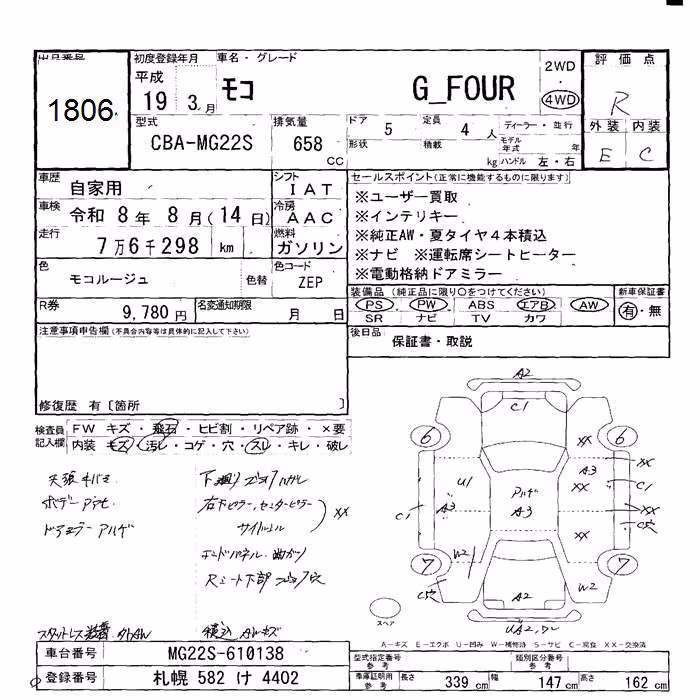 出品番号
1806
初度登録年月
平成
19 3 月
車名・グレード
モコ G_FOUR
2WD
・
4WD
評価点
R
外装 内装
E C
型式
CBA-MG22S
排気量
658 CC
ドア 5
定員 4 人
ディーラー・並行
形状
積載 kg
モデル年式 年
ハンドル 左・右
車歴
自家用
シフト
IAT
車検
令和 8 年 8 月 (14 日)
冷房
AAC
走行
7万6千298 km
燃料
ガソリン
色
モコルージュ
色替
色コード
ZEP
R券
9,780 円
名変通知期限
月 日
セールスポイント(正常に機能するものに限ります)
※ユーザー買取
※インテリキー
※純正AW・夏タイヤ4本積込
※ナビ ※運転席シートヒーター
※電動格納ドアミラー
装備品 (純正品に限り○をつけてください)
PS PW ABS エアB AW
SR ナビ TV カワ
新車保証書
有・無
後日品
保証書・取説
注意事項申告欄(不具合内容等は具体的に記入して下さい)
修復歴 有〔箇所 〕
検査員記入欄
FW キズ・飛石・ヒビ割・リペア跡・×要
内装 キズ・汚レ・コゲ・穴・スレ・キレ・破レ
ドアミラー アルゲ
サイドシル
XX
A2
C1
6
6
XX
A3
XX
XX
C1
U1
A3
C1
アルゲ
A3
XX
XX
7
7
W2
W2
A2
スペア
A-キズ E-エクボ U-凹み W-補修跡 S-サビ C-腐食 XX-交換済
車台番号
MG22S-610138
登録番号
札幌 582 け 4402
型式指定番号
参考
類別区分番号
参考
車庫証明用
参考
長さ 339 cm
幅 147 cm
高さ 162 cm